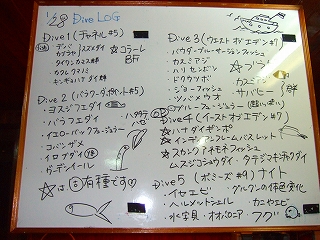 Dive LOG
Dive 1 (チャネル#5)
デバ
カブラヤ
スズメダイ
タイワンカマス群
カクレクマノミ
キンギョハナダイ群
☆コラーレ
BF
Dive 2 (パラワーク・ポイント#5)
・ヨスジフエダイ
・バラフエダイ
・イエローバックフュージラー
・コバンザメ
・イロブダイ
・ガーデンイール
ハタタテハゼ
☆は固有種です♡
Dive 3 (ウエスト オブ エデン#7)
・パウダーブルーサージョンフィッシュ
・カスミアジ
・ハリセンボン
・ドクウツボ
・ジョーフィッシュ
・ツバメウオ
カスミチョウ
・サバヒー
Dive 4 (イースト オブ エデン#7)
☆ハナダイギンポ
☆インディアンフレームバスレット
☆スカンクアネモネフィッシュ
ムスジコショウダイ・タテジマキンチャクダイ
Dive 5 (ボミーズ#9) ナイト
・イセエビ
・ヘルメットシェル
・カニヤエビ
・水字貝・オオバロニア・フグ